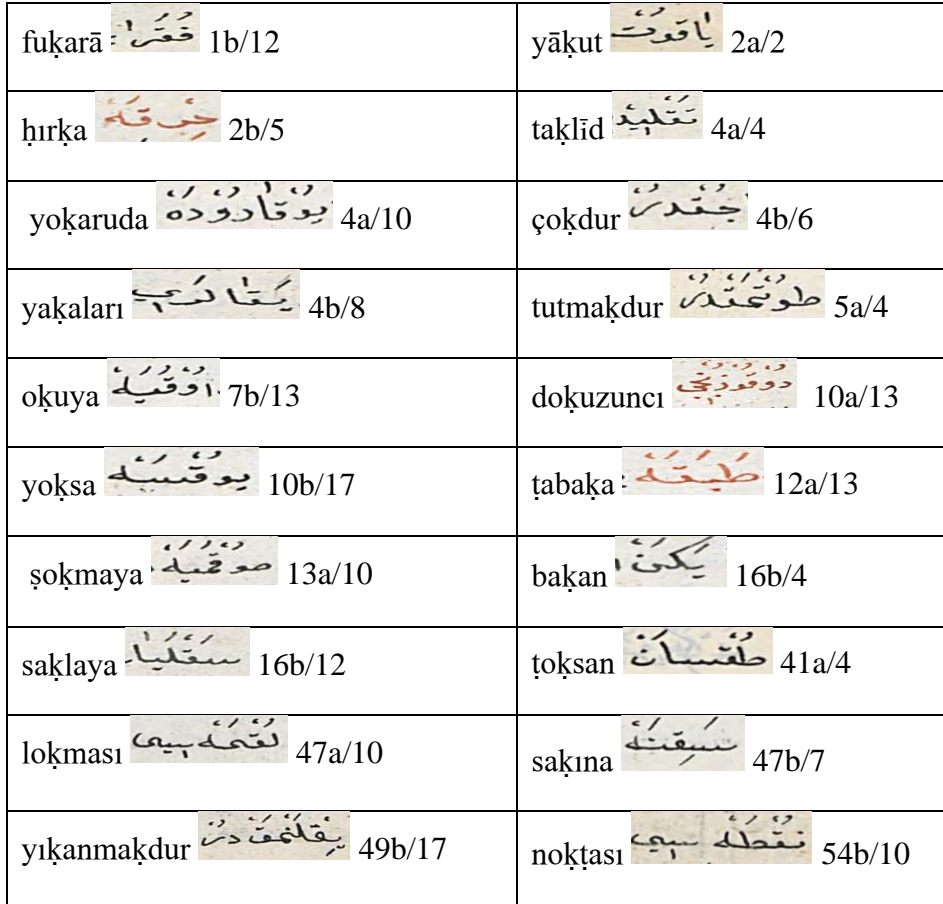 fuḳarā فُقَرَا 1b/12 yāḳut يَاقُوتْ 2a/2
ḥırḳa خِرْقَهْ 2b/5 taḳlīd تَقْلِيدْ 4a/4
yoḳaruda 4a/10 çoḳdur جُقْدُرْ 4b/6
yaḳaları يَقَالَرِي 4b/8 tutmaḳdur طُوتْمَقْدُرْ 5a/4
oḳuya اُوقُيَهْ 7b/13 doḳuzuncı دُوقُوزُنْجِي 10a/13
yoḳsa يُوقْسَهْ 10b/17 ṭabaḳa طَبَقَهْ 12a/13
ṣoḳmaya صُوقْمَيَهْ 13a/10 baḳan 16b/4
saḳlaya سَقْلَيَا 16b/12 ṭoḳsan طُقْسَانْ 41a/4
loḳması لُقْمَهْ سِي 47a/10 saḳına سَقِنَهْ 47b/7
yıḳanmaḳdur 49b/17 noḳṭası نُقْطَهْ سِي 54b/10